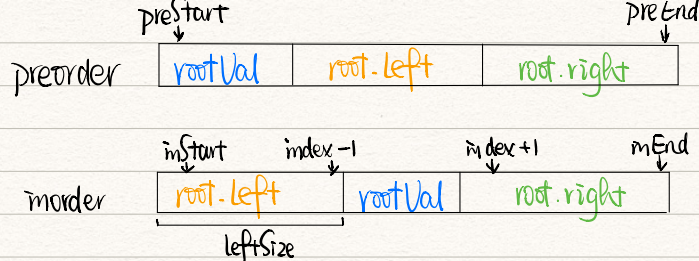 preStart preEnd
preorder rootVal root.left root.right
inStart index-1 index+1 inEnd
inorder root.left rootVal root.right
leftSize